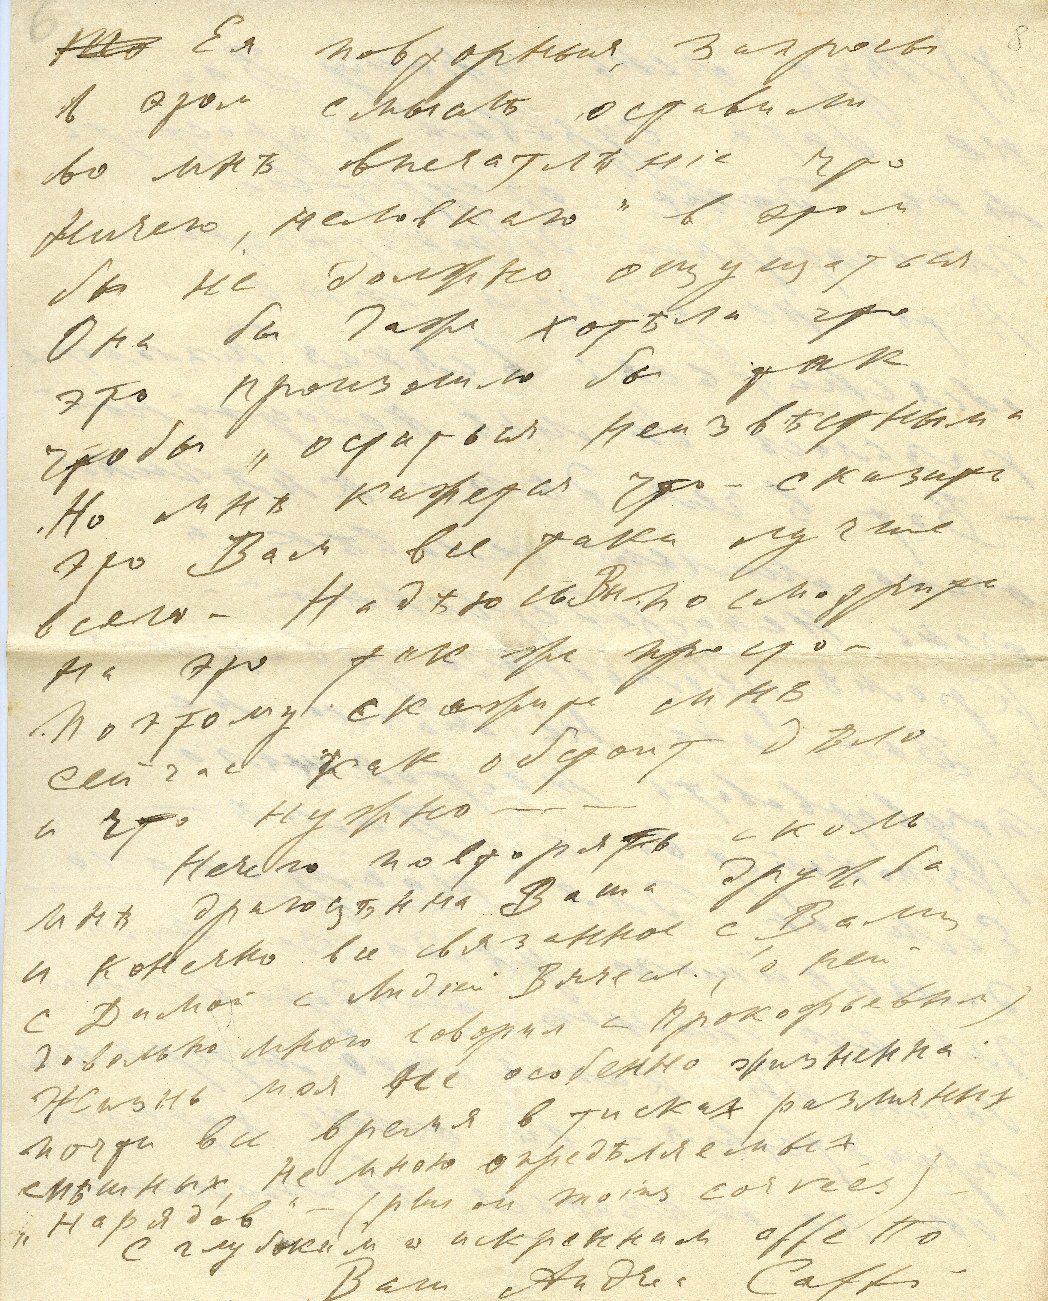 6
8
Ея повторныя запросы
в этом смыслѣ оставили
во мнѣ впечатлѣніе что
ничего „неловкаго" в этом
бы не должно ощущаться
Она бы даже хотѣла что
это произошло бы так
чтобы „остаться неизвѣстным
Но мнѣ кажется что – сказать
это Вам все таки лучше
всего – Надѣюсь Вы посмотрите
на это так же просто –
Поэтому скажите мнѣ
сейчас как обстоит дѣло
и что нужно – – –
Нечего повторять сколь
мнѣ драгоцѣнна Ваша дружба
и конечно все связанное с Вами,
с Димой с Лидіей Вячесл. (о ней
довольно много говорил с Прокофьевым)
Жизнь моя не особенно жизненна:
почти все время в тисках различных
смѣшных, не мною опредѣляемых
„нарядов" – (plus ou moins corvées) –
С глубоким и искренним affetto
Ваш Андреа Caffi –